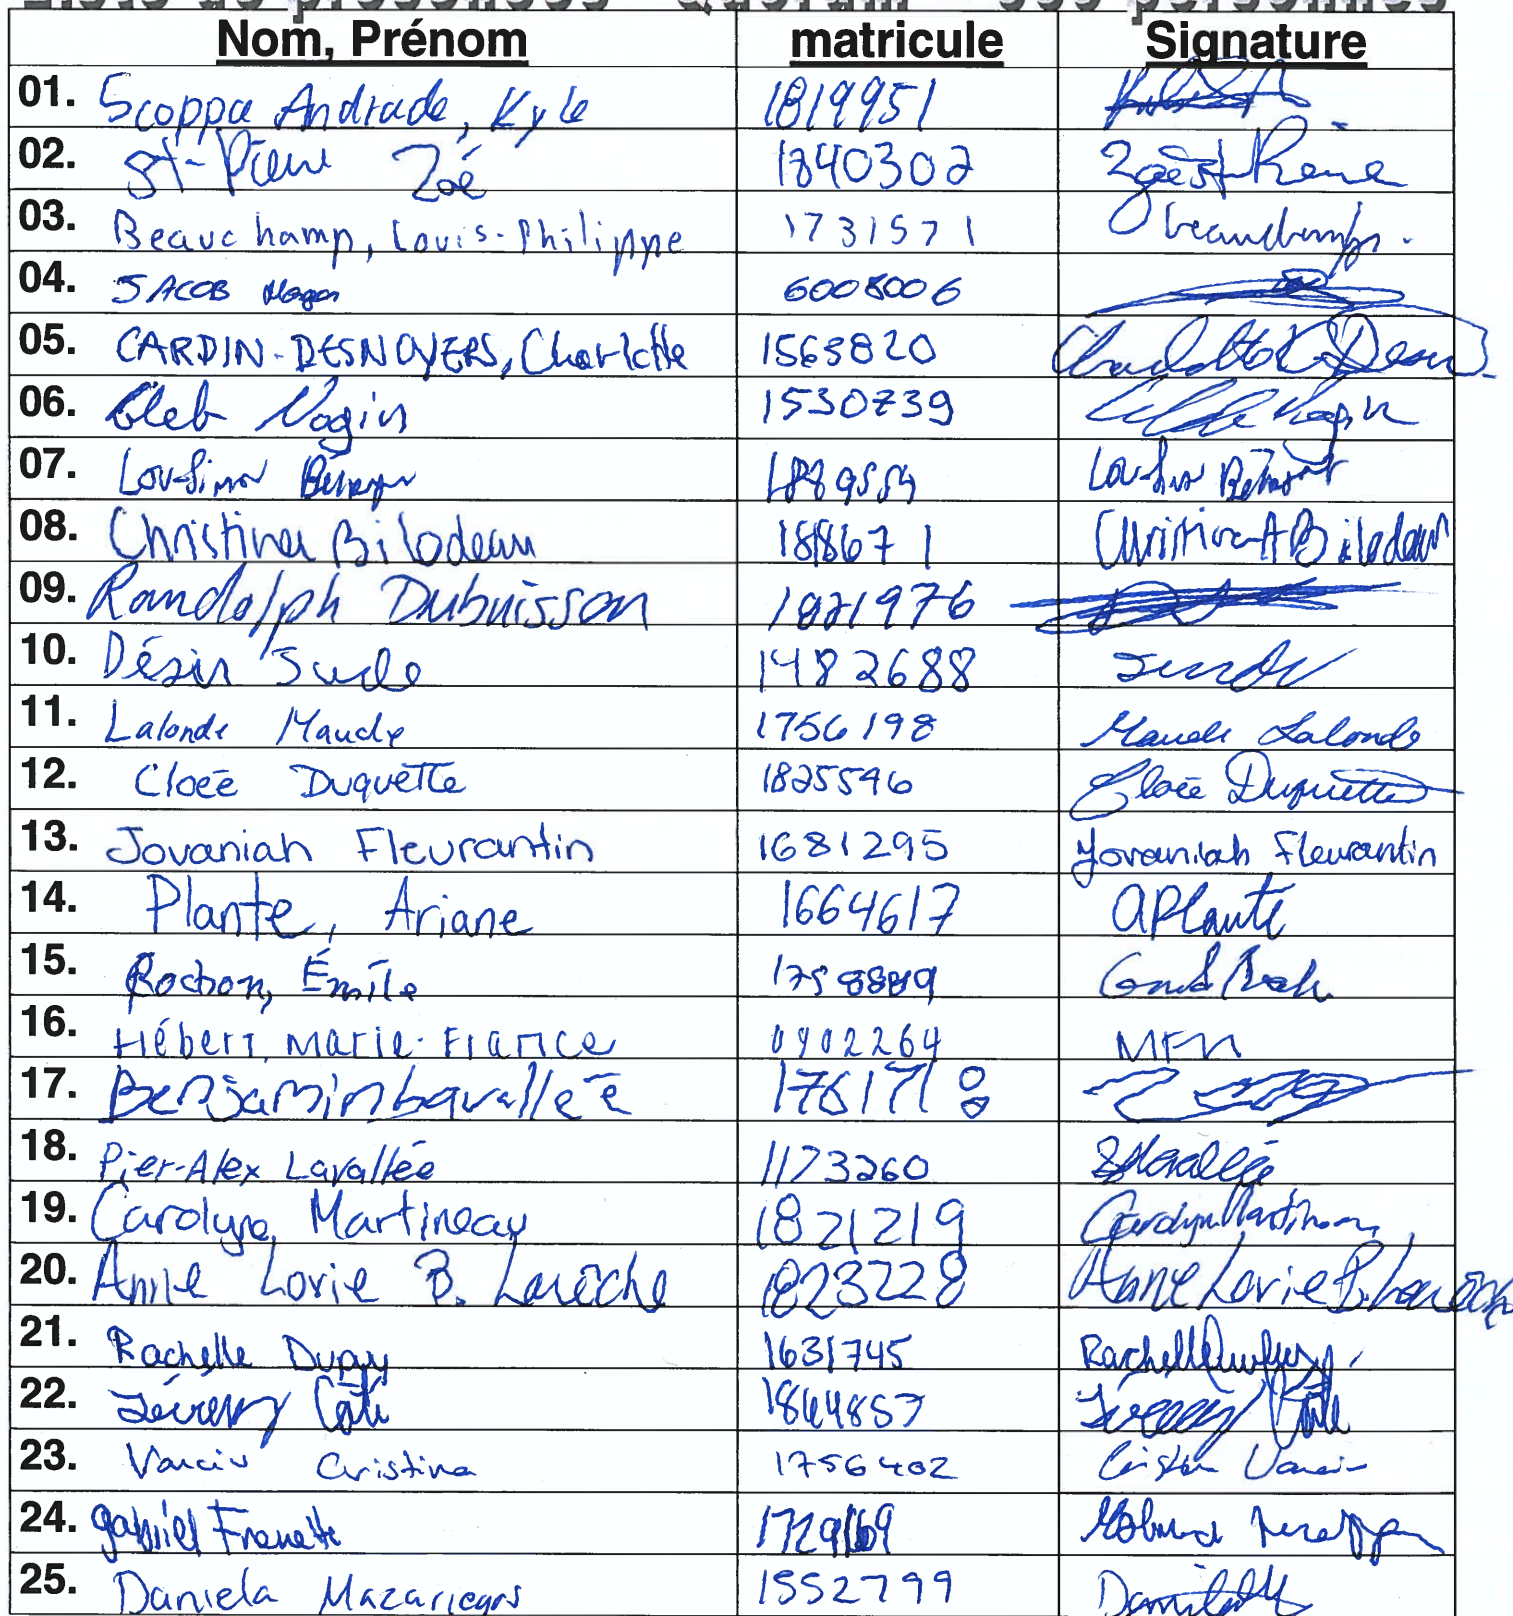 Liste de présences Quorum personnes
Nom, Prénom matricule Signature
01. Scoppa Andrade, Kyle 1819951
02. St-Pierre Zoé 1840302 Zoé St-Pierre
03. Beauchamp, Louis-Philippe 1731571 Beauchamp
04. JACOB 6008006
05. CARDIN-DESNOYERS, Charlotte 1565820 Charlotte
06. Gleb Nogin 1530739
07. Lou-Simon
08. Christina Bilodeau 1818671 Christina Bilodeau
09. Randolph Dubuisson 1821976
10. Désir Jude 1482688
11. Lalonde Maude 1756198 Maude Lalonde
12. Cloée Duquette 1825596 Cloée Duquette
13. Jovaniah Fleurantin 1681295 Jovaniah Fleurantin
14. Plante, Ariane 1664617 APlante
15. Rochon, Émile
16. Hébert, Marie-France 0902264
17. Benjamin Lavallée 1761718
18. Pier-Alex Lavallée 1173260
19. Carolyne Martineau 1821219 Carolyne Martineau
20. Anne Lorie B. Laroche 1823228 Anne Lorie B. Laroche
21. Rachelle Dupuy 1631745 Rachelle Dupuy
22. Jérémy Côté 1844857 Jérémy Côté
23. Vanciu Cristina 1756402 Cristina Vanciu
24. gabriel Frenette
25. Daniela Mazariegos 1552799